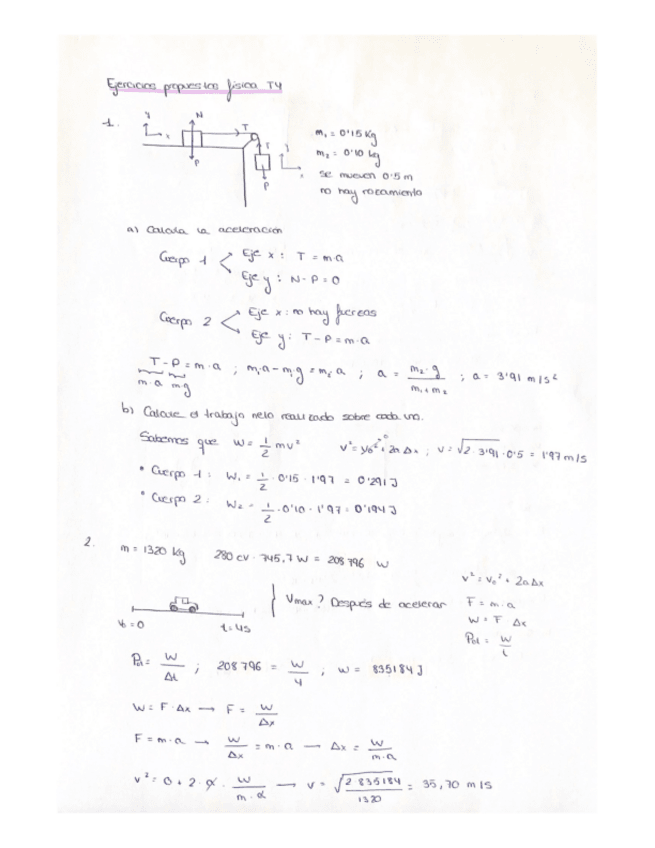 Ejercicios propuestos física T4
1.
y
x
N
T
P
T
y
x
P
m₁ = 0'15 kg
m₂ = 0'10 kg
se mueven 0.5 m
no hay rozamiento
a) Calcula la aceleración
Cuerpo 1 < Eje x : T = m·a
Eje y : N - P = 0
Cuerpo 2 < Eje x : no hay fuerzas
Eje y : T - P = m·a
T - P = m·a ; m₁a - m₂g = m₂a ; a = m₂·g / m₁+m₂ ; a = 3'91 m/s²
m·a mg
b) Calcule el trabajo neto realizado sobre cada uno.
Sabemos que W = 1/2 mv² v² = v₀² + 2a Δx ; v = √2·3'91·0'5 = 1'97 m/s
• Cuerpo 1 : W₁ = 1/2 · 0'15 · 1'97 = 0'291 J
• Cuerpo 2 : W₂ = 1/2 · 0'10 · 1'97 = 0'194 J
2. m = 1320 kg 280 cv · 745,7 W = 208796 W
v² = v₀² + 2aΔx
Vmax? Después de acelerar
F = m·a
W = F Δx
Pot = W/t
v₀ = 0 t = 4s
Pot = W/Δt ; 208796 = W/4 ; W = 835184 J
W = F·Δx → F = W/Δx
F = m·a → W/Δx = m·a → Δx = W/m·a
v² = 0 + 2·a · W/m·a → v = √2·835184/1320 = 35,70 m/s